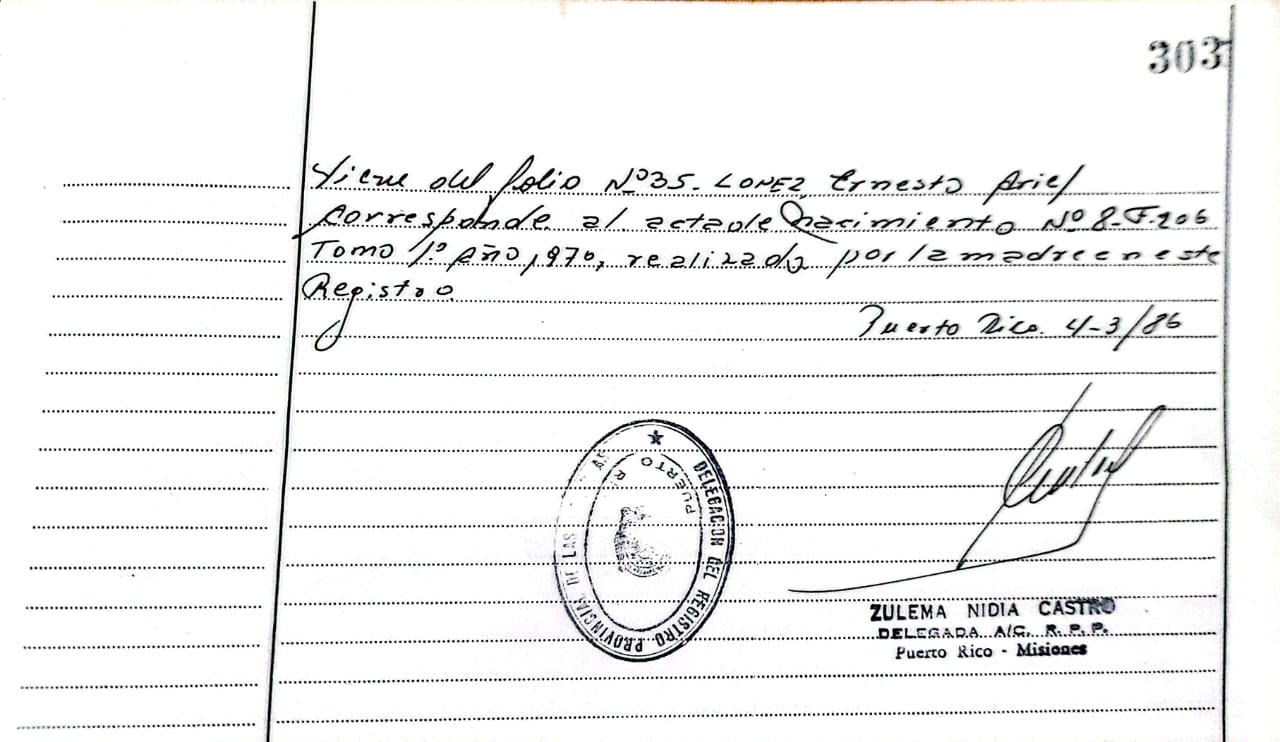 303
Viene del folio Nº35. LOPEZ, Ernesto Ariel
corresponde al acta de Nacimiento Nº 8-F.206
Tomo 1º Año 1970, realizada por la madre en este
Registro.
Puerto Rico. 4-3/86
DELEGACION DEL REGISTRO PROVINCIAL DE LAS AS
PUERTO R O
ZULEMA NIDIA CASTRO
DELEGADA A/C. R. P. P.
Puerto Rico - Misiones